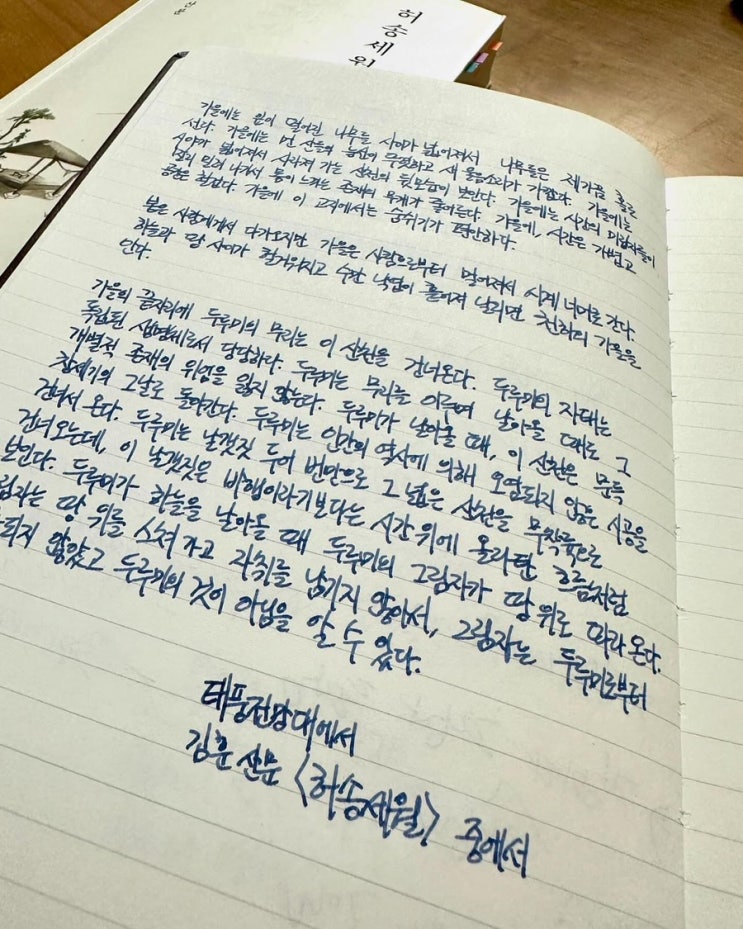 허송세월
가을에는 잎이 떨어진 나무들 사이가 넓어져서 나무들은 제가끔 홀로
선다. 가을에는 먼 산들의 능선이 뚜렷하고 새 울음소리가 가깝다. 가을에는
시야가 넓어져서 사라져 가는 산천의 뒷모습이 보인다. 가을에는 시간의 미립자들이
멀리 밀려 나가서 몸이 느끼는 존재의 무게가 줄어든다. 가을에, 시간은 가볍고
공간은 헐겁다. 가을에 이 고지에서는 숨쉬기가 편안하다.
봄은 사람에게서 다가오지만 가을은 사람으로부터 멀어져서 시계 너머로 간다.
하늘과 땅 사이가 헐거워지고 수만 낙엽이 흩어져 날리면 천하의 가을을
안다.
가을의 끝자리에 두루미의 무리는 이 산천을 건너온다. 두루미의 자태는
독립된 생명체로서 당당하다. 두루미는 무리를 이루어 날아올 때도 그
개별적 존재의 위엄을 잃지 않는다. 두루미가 날아올 때, 이 산천은 문득
창세기의 그날로 돌아간다. 두루미는 인간의 역사에 의해 오염되지 않은 시공을
건너서 온다. 두루미는 날갯짓 두어 번만으로 그 넓은 산천을 무착륙으로
건너오는데, 이 날갯짓은 비행이라기보다는 시간 위에 올라탄 흐름처럼
보인다. 두루미가 하늘을 날아올 때 두루미의 그림자가 땅 위로 따라온다.
림자는 땅 위를 스쳐 가고 자취를 남기지 않아서, 그림자는 두루미로부터
되지 않았고 두루미의 것이 아님을 알 수 있다.
태풍전망대에서
김훈 산문 〈허송세월〉 중에서